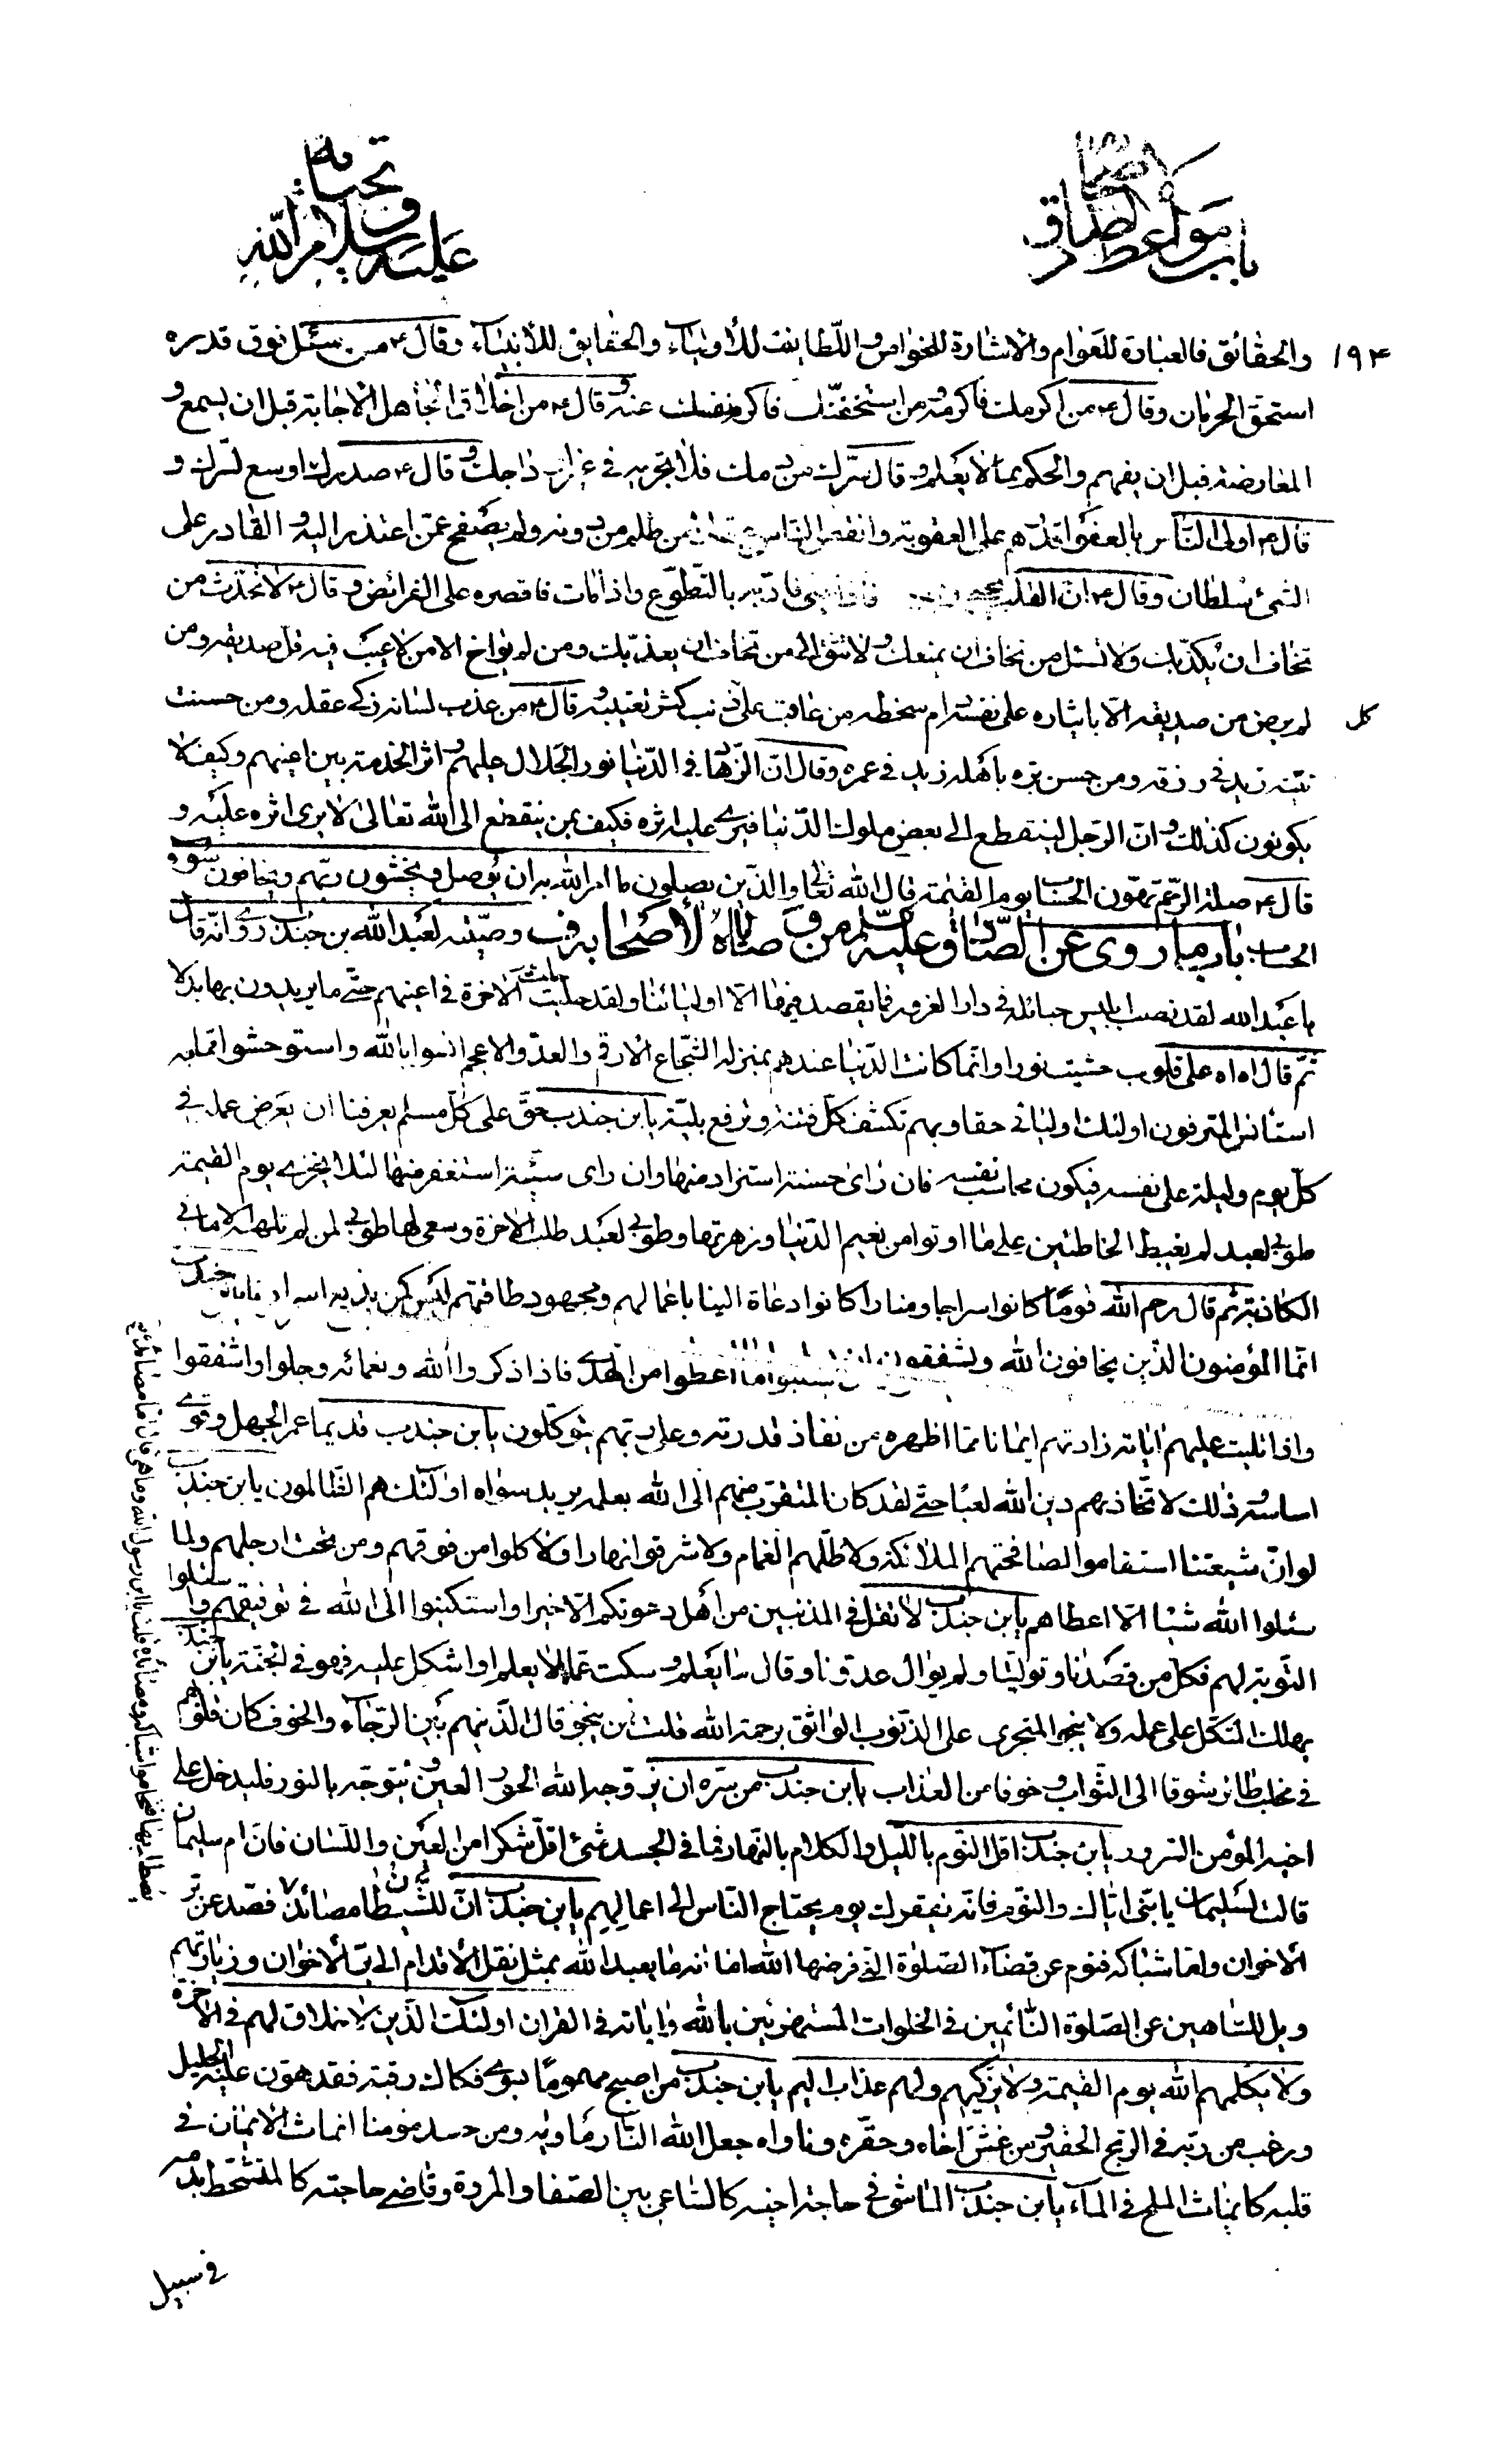 باب مواعظ الصادق
عليه وسلام الله وتحياته
١٩٤
والحقائق فالعبارة للعوام والاشارة للخواص واللطائف للاولياء والحقايق للانبياء وقال ع من سئل فوق قدره
استحق الحرمان وقال ع من اكرمك فاكرمه ومن استخفك فاكرم نفسك عنه وقال ع من اخلاق الجاهل الاجابة قبل ان يسمع و
المعارضة قبل ان يفهم والحكم بما لا يعلم وقال سرك من دمك فلا تجريه في غير اوداجك وقال ع صدرك اوسع لسرك و
قال ع اولى الناس بالعفو اقدرهم على العقوبة وانقص الناس عقلا من ظلم من دونه ولم يصفح عمن اعتذر اليه و القادر على
الشئ سلطان وقال ع ان القلب فادبه بالتطوع واذا مات فاقصره على الفرائض و قال ع لا تحدث من
تخاف ان يكذبك ولا تسئل من تخاف ان يمنعك ولا تثق الى من تخاف ان يعذبك ومن لم يواخ الا من لا عيب فيه قل صديقه ومن
لم يرض من صديقه الا بايثاره على نفسه دام سخطه ومن عاقب على ذنب كثر تعتبه و قال ع من عذب لسانه زكى عقله ومن حسنت
كل
نيته زيد في رزقه ومن حسن بره باهله زيد في عمره وقال ان الزهاد في الدنيا نور الجلال عليهم واثر الخدمة بين اعينهم وكيف لا
يكونون كذلك و ان الرجل لينقطع الى بعض ملوك الدنيا فيرى عليه اثره فكيف بمن ينقطع الى الله تعالى لا يرى اثره عليه و
قال ع صلة الرحم تهون الحساب يوم القيمة قال الله تعالى والذين يصلون ما امر الله به ان يوصل ويخشون ربهم ويخافون سوء
الحساب باب ما روى عن الصادق عليه السلم من وصاياه لاصحابه في وصيته لعبد الله بن جندب روى انه قال
يا عبد الله لقد نصب ابليس حبائله في دار الغرور فما يقصد فيها الا اوليائنا ولقد جلت الاخرة في اعينهم حتى ما يريدون بها بدلا
ثم قال اه اه على قلوب حشيت نورا وانما كانت الدنيا عندهم بمنزلة الشجاع الارقم والعدو الاعجم انسوا بالله واستوحشوا مما به
استانس المترفون اولئك اوليائى حقا وبهم تكشف كل فتنة وترفع بلية يا بن جندب حق على كل مسلم يعرفنا ان يعرض عمله في
كل يوم وليلة على نفسه فيكون محاسب نفسه فان راى حسنة استزاد منها وان راى سيئة استغفر منها لئلا يخزى يوم القيمة
طوبى لعبد لم يغبط الخاطئين على ما اوتوا من نعيم الدنيا وزهرتها وطوبى لعبد طلب الاخرة وسعى لها طوبى لمن لم تلهه الامانى
الكاذبة ثم قال رحم الله قوما كانوا سراجا ومنارا كانوا دعاة الينا باعمالهم ومجهود طاقتهم ليس كمن يذيع يابن جندب
انما المؤمنون الذين يخافون الله ويشفقون ان يسلبوا ما اعطوا من الهدى فاذا ذكروا الله ونعمائه وجلوا واشفقوا
واذا تليت عليهم اياته زادتهم ايمانا مما اظهره من نفاذ قدرته وعلى ربهم يتوكلون يا بن جندب قديما عمر الجهل وقوى
اساسه و ذلك لاتخاذهم دين الله لعبا حتى لقد كان المتقرب منهم الى الله بعلمه يريد سواه اولئك هم الظالمون يابن جندب
لو ان شيعتنا استقاموا لصافحتهم الملائكة ولاظلهم الغمام ولاشرقوا نهارا ولاكلوا من فوقهم ومن تحت ارجلهم ولما
سئلوا الله شيئا الا اعطاهم يابن جندب لا تقل في المذنبين من اهل دعوتكم الا خيرا واستكينوا الى الله في توفيقهم وسئلوا
التوبة لهم فكل من قصدنا وتولينا ولم يوال عدونا وقال ما يعلم و سكت عما لا يعلم او اشكل عليه فهو في الجنة يابن جندب
يهلك المتكل على عمله ولا ينجو المتجرى على الذنوب الواثق برحمة الله قلت فمن ينجو قال الذينهم بين الرجاء والخوف كان قلوبهم
في مخلب طائر شوقا الى الثواب و خوفا من العذاب يابن جندب من سره ان يزوجه الله الحور العين و يتوجه بالنور فليدخل على
اخيه المؤمن السرور يابن جندب اقل النوم بالليل والكلام بالنهار فما في الجسد شئ اقل شكرا من العين واللسان فان ام سليمان
قالت لسليمان يا بنى اياك والنوم فانه يفقرك يوم يحتاج الناس الى اعمالهم يابن جندب ان للشيطان مصائد فصد عن بر
الاخوان واما شباكه فنوم عن قضاء الصلوة التى فرضها الله اما انه ما يعبد الله بمثل نقل الاقدام الى بر الاخوان وزيارتهم
ويل للساهين عن الصلوة النائمين في الخلوات المستهزئين بالله واياته في القران اولئك الذين لا خلاق لهم في الاخرة
ولا يكلمهم الله يوم القيمة ولا يزكيهم ولهم عذاب اليم يابن جندب من اصبح مهموما سوى فكاك رقبته فقد هون عليه الجليل
ورغب من ربه في الربح الحقير و من غش اخاه وحقره وناواه جعل الله النار ماويه ومن حسد مؤمنا انماث الايمان في
قلبه كما ينماث الملح في الماء يابن جندب الماشى في حاجة اخيه كالساعى بين الصفا والمروة وقاضى حاجته كالمتشحط بدمه
في سبيل
يصطاد بها فتحاموا شباكه ومصائده قلت يا ابن رسول الله وما هى قال اما مصائده